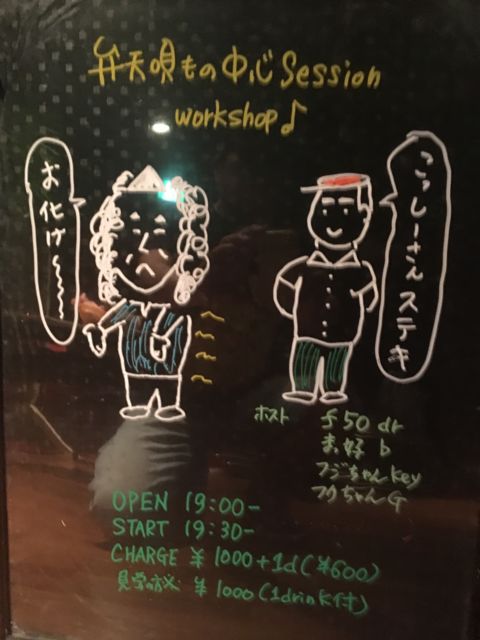 弁天唄もの中心Session
workshop♪
お化け〜〜〜
こっしーさんステキ
ホスト f50 dr
まぁ好 b
フジちゃんKey
フクちゃんG
OPEN 19:00-
START 19:30-
CHARGE ¥1000+1d(¥600)
見学の方は ¥1000(1drink付)